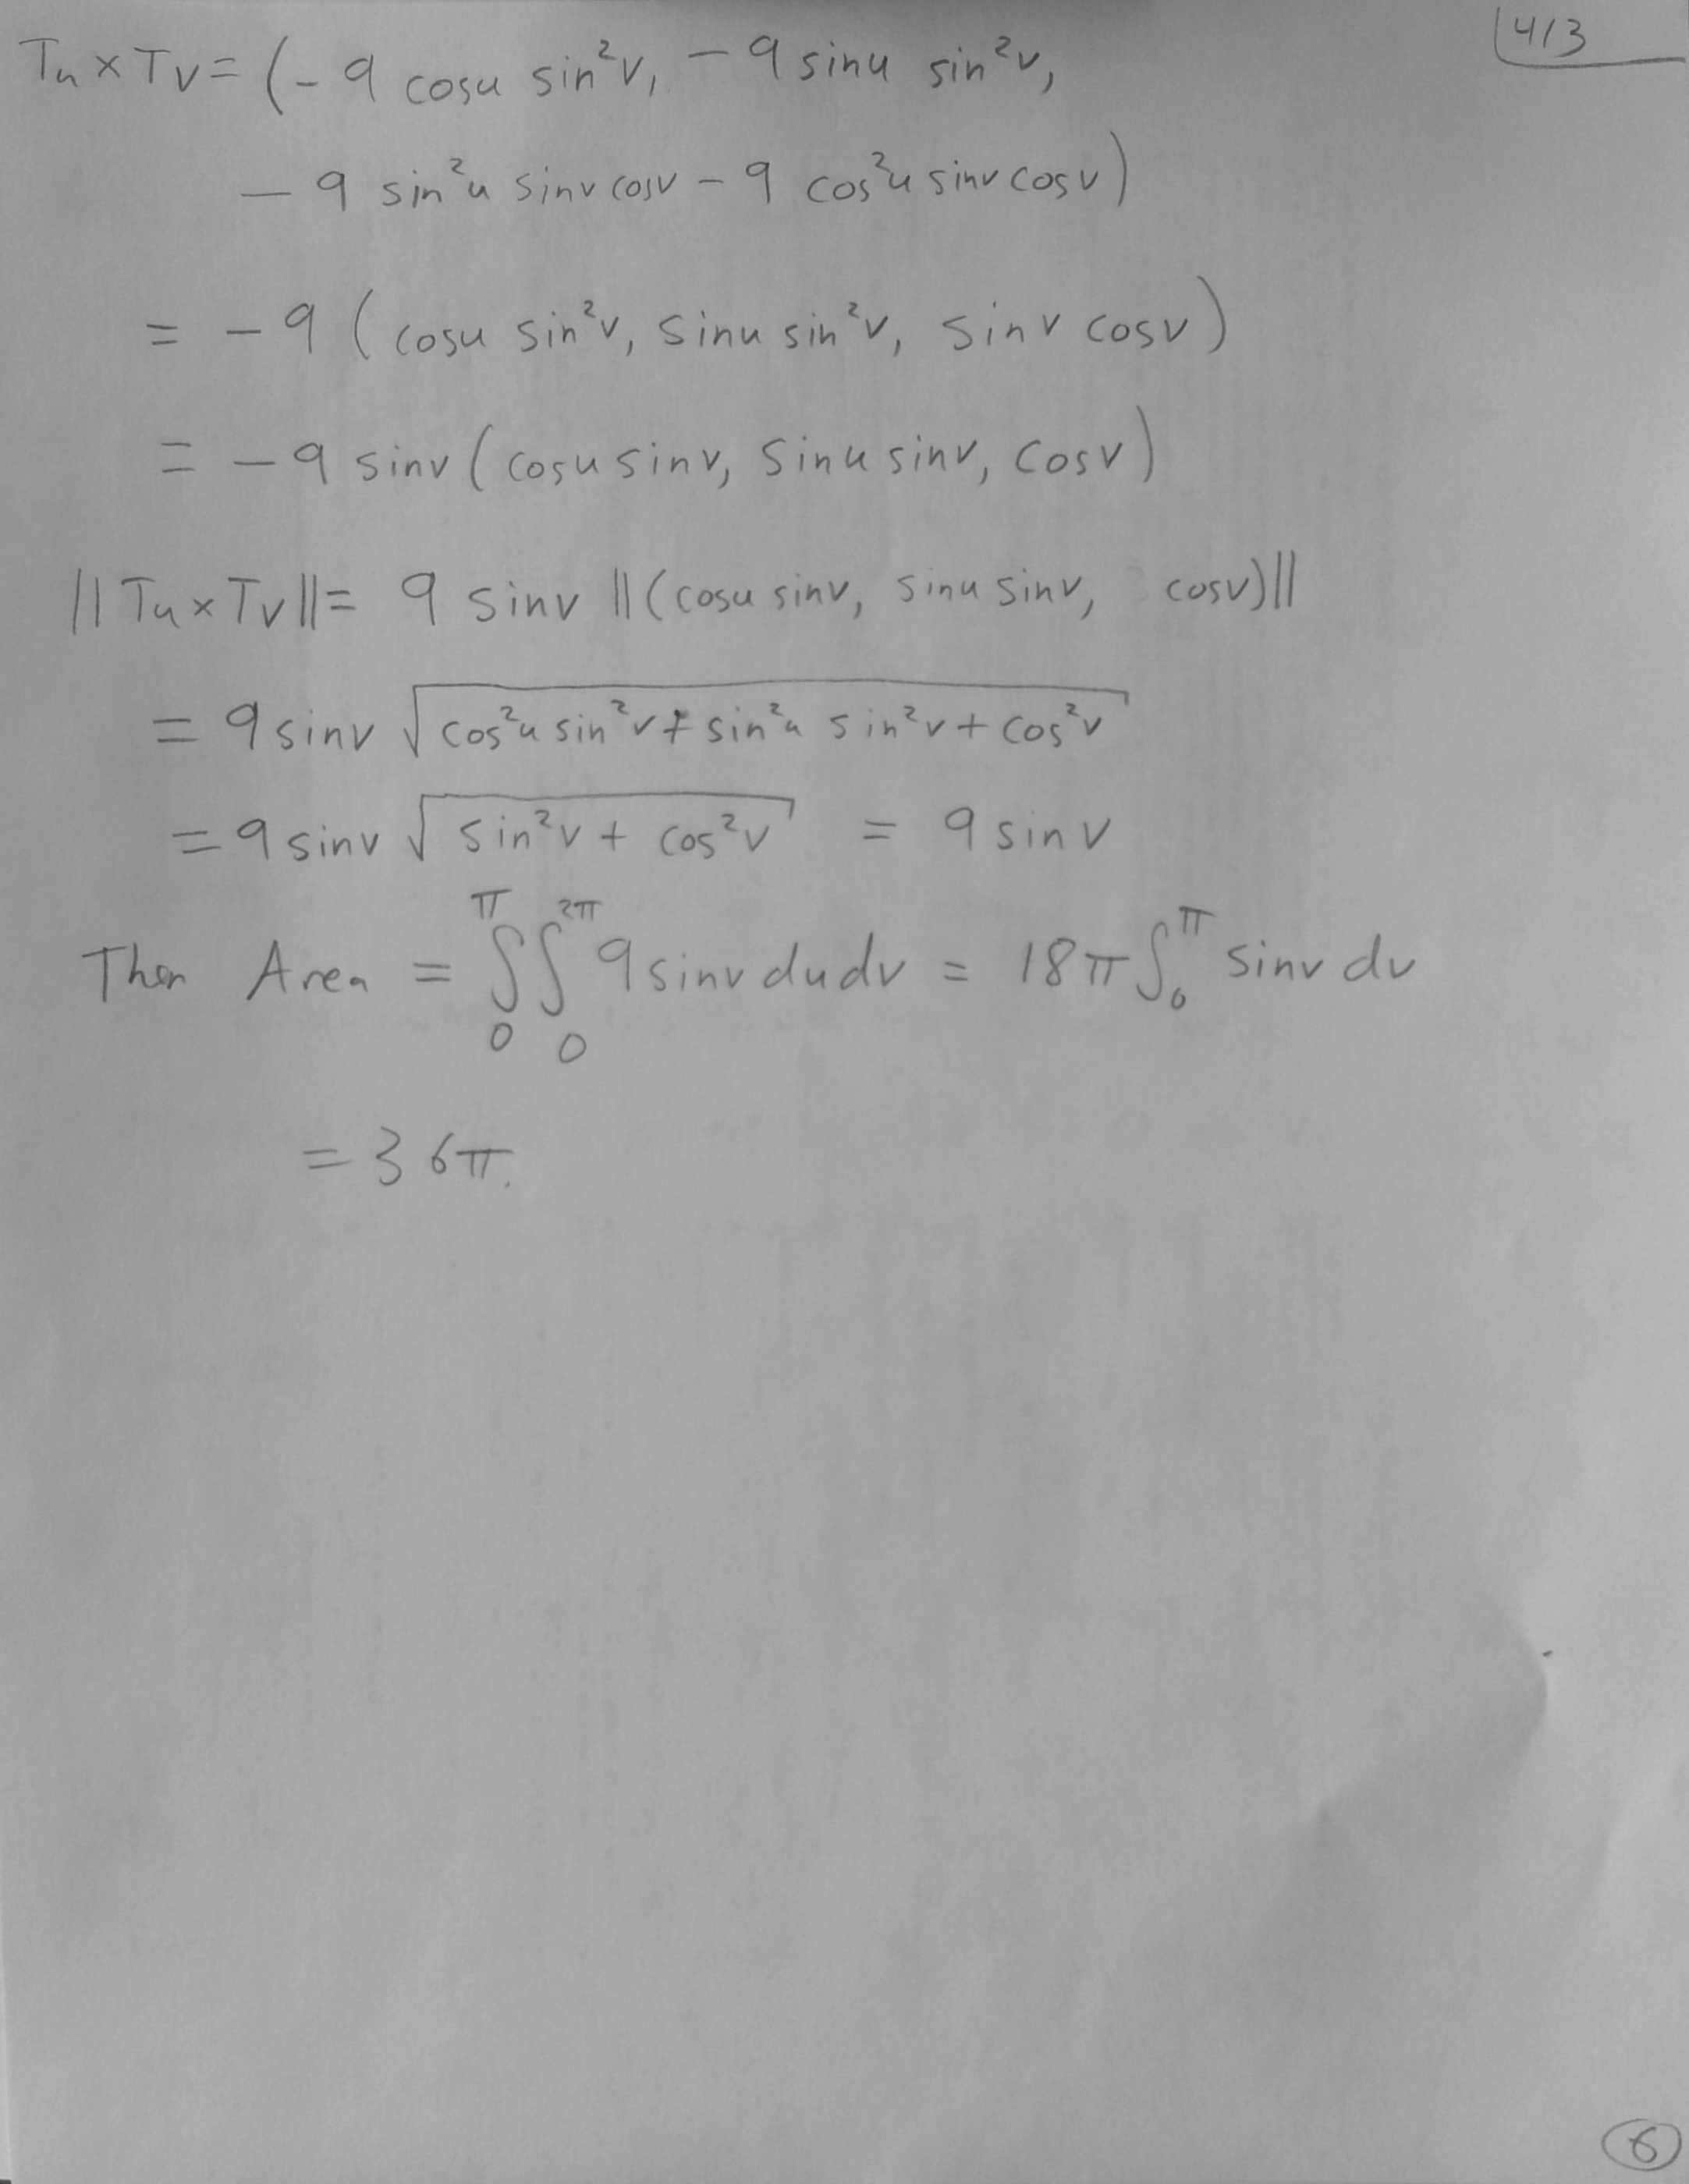 4/3
Tu × Tv = (-9 cosu sin²v, -9 sinu sin²v,
-9 sin²u sinv cosv - 9 cos²u sinv cosv)
= -9 (cosu sin²v, sinu sin²v, sinv cosv)
= -9 sinv (cosu sinv, sinu sinv, cosv)
||Tu × Tv|| = 9 sinv ||(cosu sinv, sinu sinv, cosv)||
= 9 sinv √(cos²u sin²v + sin²u sin²v + cos²v)
= 9 sinv √(sin²v + cos²v) = 9 sinv
Then Area = ∫₀^π ∫₀^2π 9 sinv du dv = 18π ∫₀^π sinv dv
= 36π.
6